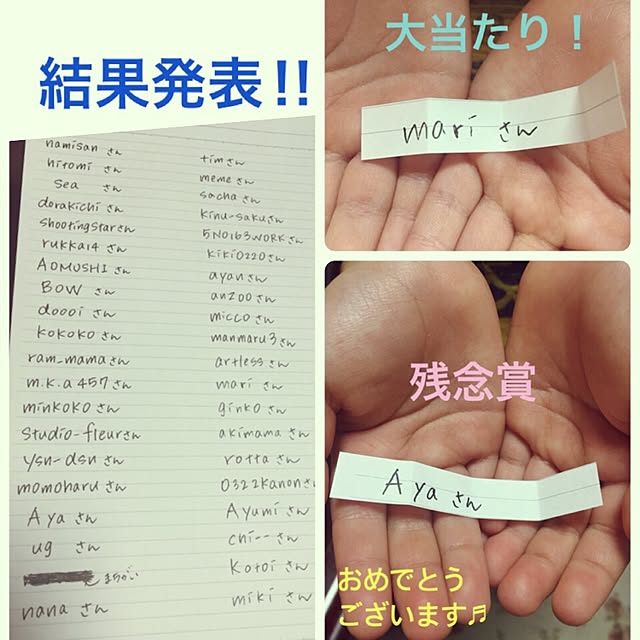 結果発表!!
namisan さん
hitomi さん
sea さん
dorakichi さん
shootingstarさん
rukka14 さん
AOMUSHI さん
BOW さん
doooi さん
kokoko さん
ram_mamaさん
m.k.a457さん
minkoko さん
studio-fleurさん
ysn-dsn さん
momoharu さん
Aya さん
ug さん
まちがい
nana さん
timさん
meme さん
sacha さん
kinu-sakuさん
5NO163WORKさん
kiki0220さん
ayanさん
anzooさん
miccoさん
manmaru3さん
artlessさん
mari さん
ginko さん
akimamaさん
rotta さん
0322kanonさん
Ayumi さん
chi-- さん
Kotoi さん
miki さん
大当たり！
mari さん
残念賞
Aya さん
おめでとう
ございます♬